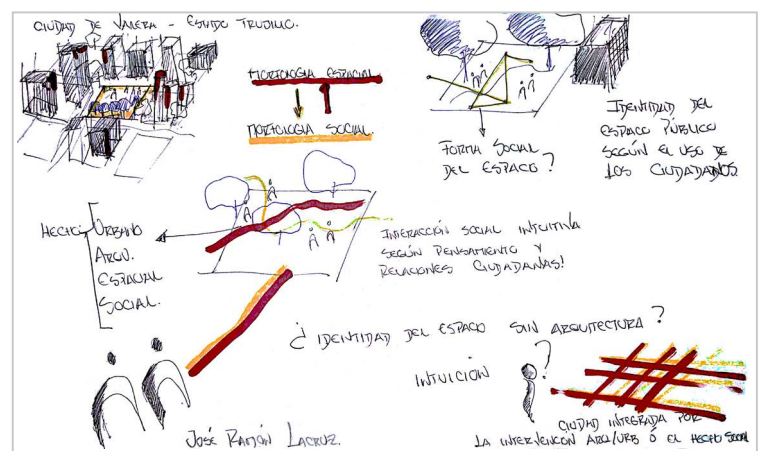 CIUDAD DE VALERA - ESTADO TRUJILLO.
MORFOLOGIA ESPACIAL
MORFOLOGIA SOCIAL.
FORMA SOCIAL
DEL ESPACIO?
IDENTIDAD DEL
ESPACIO PÚBLICO
SEGÚN EL USO DE
LOS CIUDADANOS.
HECHO URBANO
ARQU.
ESPACIAL
SOCIAL.
INTERACCIÓN SOCIAL INTUITIVA
SEGÚN PENSAMIENTO Y
RELACIONES CIUDADANAS!
¿IDENTIDAD DEL ESPACIO SIN ARQUITECTURA?
INTUICIÓN ?
CIUDAD INTEGRADA POR
LA INTERVENCIÓN ARQ/URB Ó EL HECHO SOCIAL
JOSÉ RAMÓN LACRUZ.